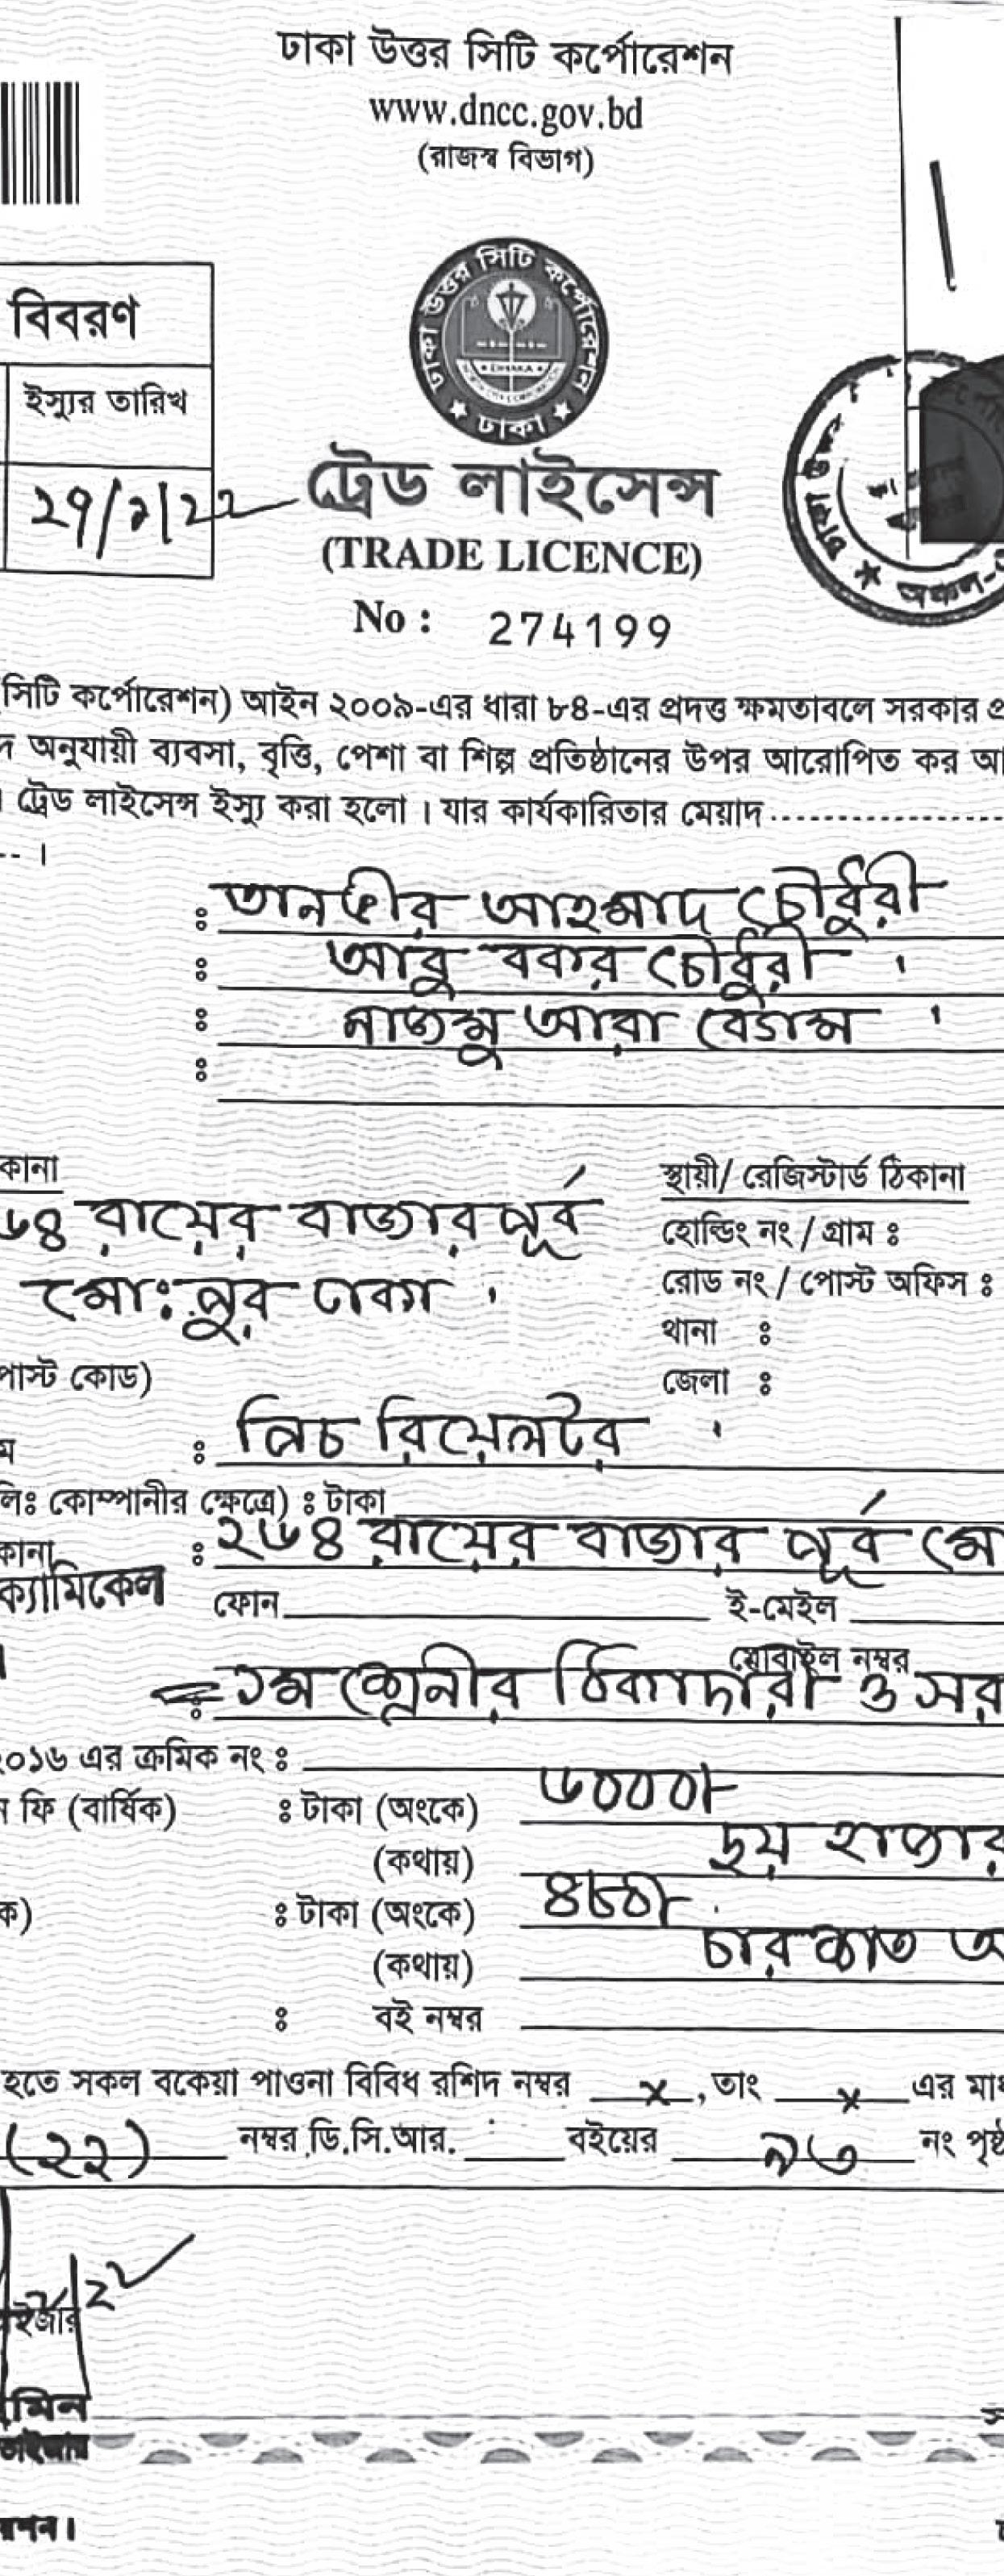 ঢাকা উত্তর সিটি কর্পোরেশন
www.dncc.gov.bd
(রাজস্ব বিভাগ)
ঢাকা উত্তর সিটি কর্পোরেশন
DHAKA
★ ঢাকা ★
বিবরণ
ইস্যুর তারিখ
ট্রেড লাইসেন্স
(TRADE LICENCE)
No : 274199
সিটি কর্পোরেশন) আইন ২০০৯-এর ধারা ৮৪-এর প্রদত্ত ক্ষমতাবলে সরকার প্র
দ অনুযায়ী ব্যবসা, বৃত্তি, পেশা বা শিল্প প্রতিষ্ঠানের উপর আরোপিত কর আ
। ট্রেড লাইসেন্স ইস্যু করা হলো । যার কার্যকারিতার মেয়াদ --------------------
-- ।
ঃ তানভীর আহম্মাদ চৌধুরী
ঃ আবু বকর চৌধুরী
ঃ আরা বেগম
ঃ
কানা
৬৪ রায়ের বাজার পূর্ব
মোঃ পুর ঢাকা
স্থায়ী/ রেজিস্টার্ড ঠিকানা
হোল্ডিং নং / গ্রাম ঃ
রোড নং / পোস্ট অফিস ঃ
থানা ঃ
জেলা ঃ
পাস্ট কোড)
ম ঃ রিয়েলটর
লিঃ কোম্পানীর ক্ষেত্রে) ঃ টাকা
কানা ঃ ২৬৪ রায়ের বাজার পূর্ব মো
ক্যামিকেল
ফোন ই-মেইল
মোবাইল নম্বর
ঃ ১ম শ্রেনীর ঠিকাদারী ও সর
২০১৬ এর ক্রমিক নং ঃ
ন ফি (বার্ষিক) ঃ টাকা (অংকে) ৬০০০/-
(কথায়) ছয় হাজার
ক) ঃ টাকা (অংকে)
(কথায়) চার শত আ
ঃ বই নম্বর
হতে সকল বকেয়া পাওনা বিবিধ রশিদ নম্বর x , তাং x এর মাধ
(২২) নম্বর ডি.সি.আর. বইয়ের নং পৃষ্ঠ